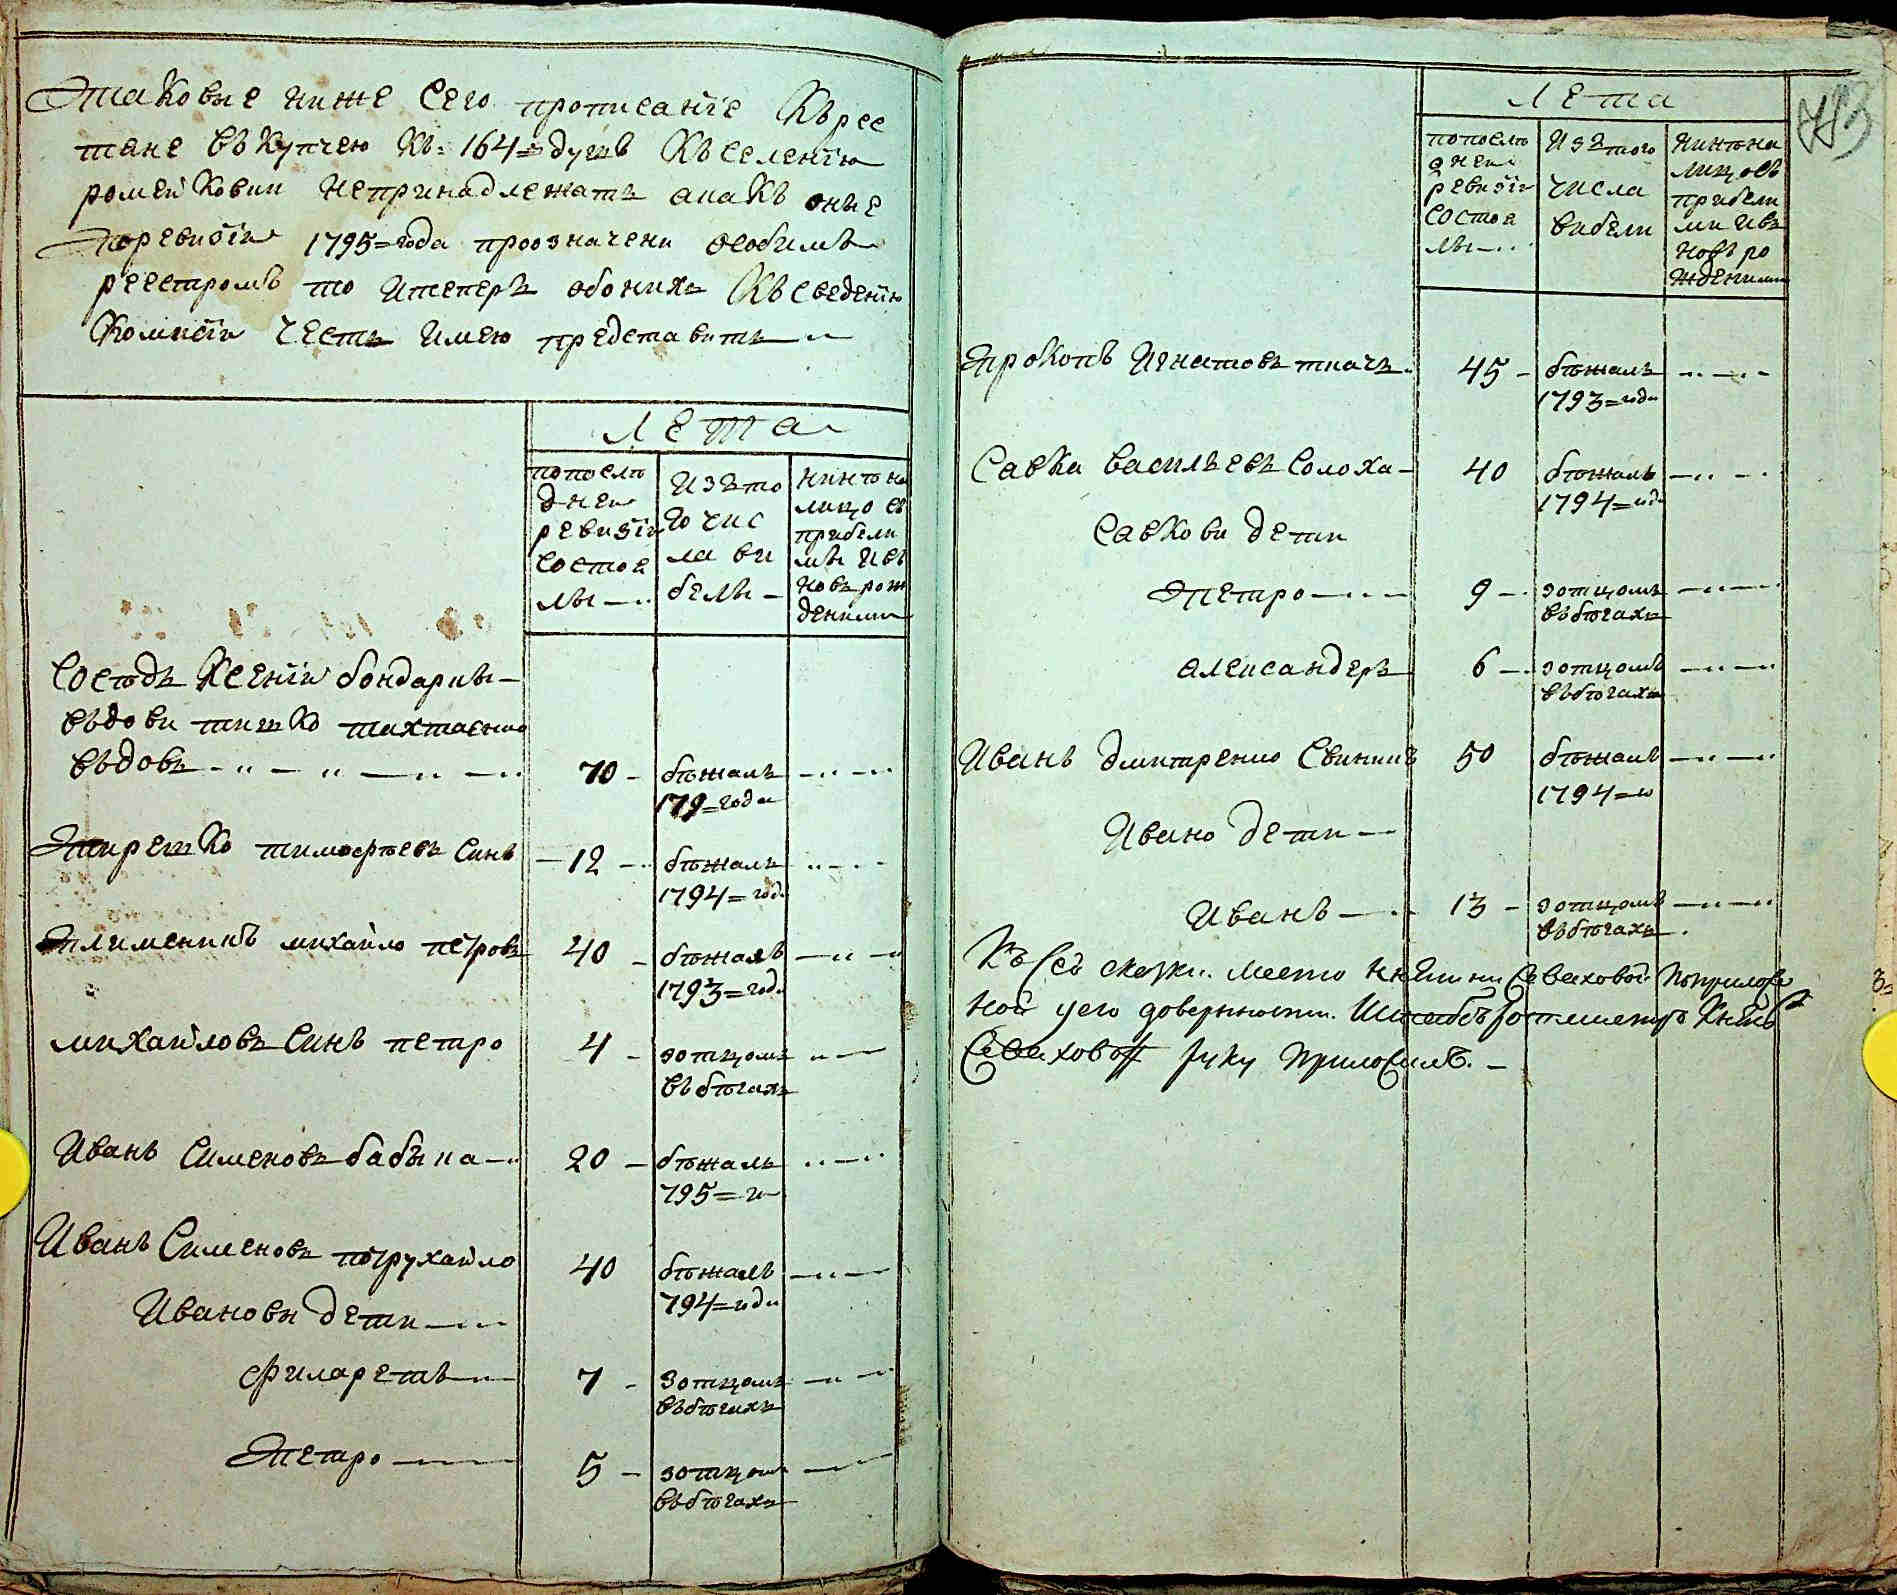 Таковые ниже сего прописание кърес
тяне въ купчею къ: 164= душъ къ селению
ромейковки непринадлежатъ а какъ оные
поревизіи 1795= года прозначени особимъ
реестромъ то итеперъ обонихъ къ сведению
комисіи честь имею представить
Лета
попослѣ
дней
ревизіи
состоя
лы
Изъ то
го чис
ла ви
были
нинѣ на
лицо съ
прибелы
мы исъ
новъ рож
денными
Состодъ Ксенѣи бондаривы
въдови тишко тахтаенко
въдовъ
70
бѣжалъ
179= года
Терешко тимофѣевъ синъ
12
бѣжалъ
1794= года
Племенникъ михайло петровъ
40
бѣжалъ
1793= года
михайловъ синъ петро
4
зотцомъ
въ бѣгахъ
Иванъ Сименовъ бабѣка
20
бѣжалъ
795= го
Иванъ Сименовъ потрухайло
40
бѣжалъ
794= года
Ивановы дети
Филаретъ
7
зотцомъ
въбѣгахъ
Петро
5
зотцом
въбѣгахъ
Лета
113
попослѣ
дней
ревизіи
состоя
лы
Изътого
числа
вибели
нинѣ на
лицо съ
прибели
ми изъ
новъ ро
жденними
Прокопъ Игнатовъ ткачъ
45
бѣжалъ
1793= года
Савка василъевъ Солоха
40
бѣжалъ
1794= года
Савкови дети
Петро
9
зотцомъ
въбѣгахъ
Александеръ
6
зотцомъ
въбѣгахъ
Иванъ дмитренко Свинникъ
50
бѣжалъ
1794= го
Ивано дети
Иванъ
13
зотцомъ
въбѣгахъ
Къ сей скаски место княгини Севаховой поприложе
ной у его доверености Штабъ ротмистръ Князь
Севаховъ руку приложилъ.